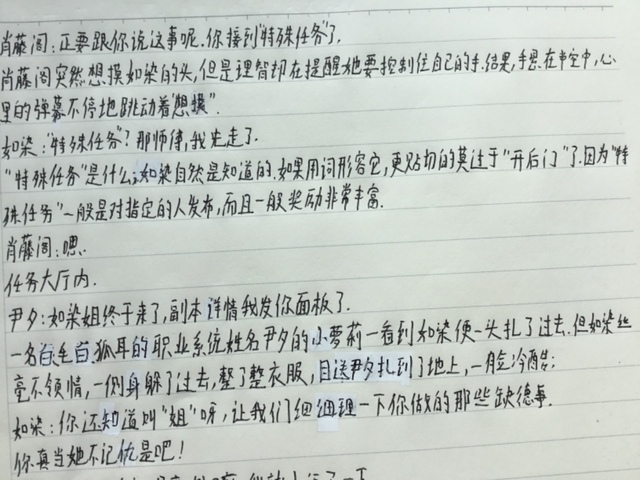 肖藤阁:正要跟你说这事呢.你接到"特殊任务"了.
肖藤阁突然想摸如染的头,但是理智却在提醒她要控制住自己的手.结果,手悬在半空中,心
里的弹幕不停地跳动着"想摸".
如染:"特殊任务"?那师傅,我先走了.
"特殊任务"是什么,如染自然是知道的.如果用词形容它,更贴切的莫过于"开后门"了.因为"特
殊任务"一般是对指定的人发布,而且一般奖励非常丰富.
肖藤阁:嗯.
任务大厅内.
尹夕:如染姐终于来了,副本详情我发你面板了.
一名白毛白狐耳的职业系统姓名尹夕的小萝莉一看到如染便一头扎了过去.但如染丝
毫不领情,一侧身躲了过去,整了整衣服,目送尹夕扎到了地上,一脸冷酷;
如染:你还知道叫"姐"呀,让我们细细理一下你做的那些缺德事.
你真当她不记仇是吧!